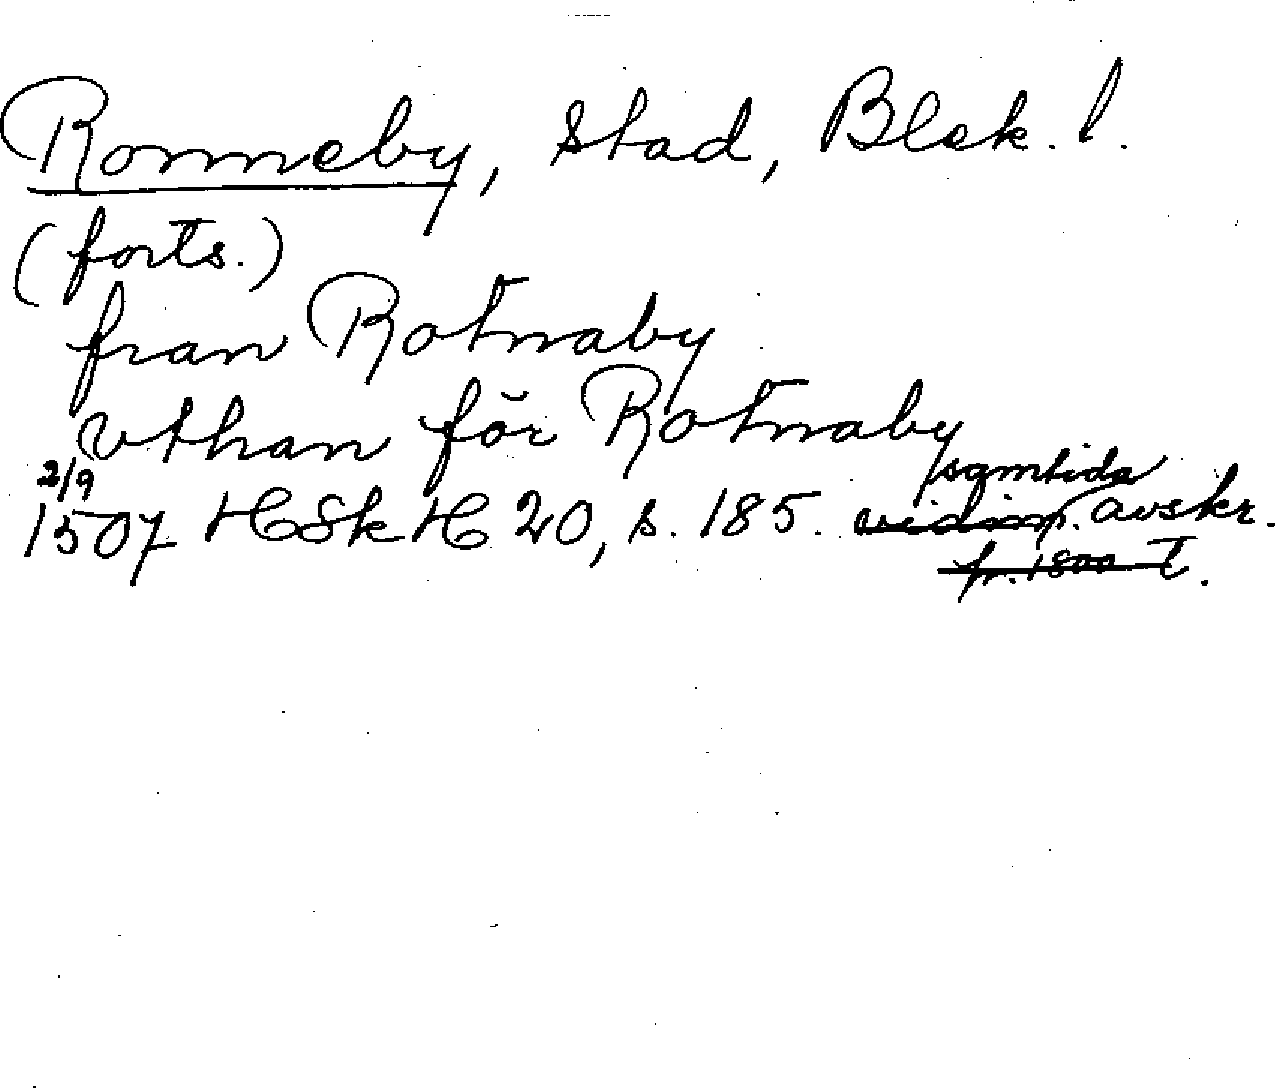 Ronneby, stad, Blek. l.
(forts.)
fran Rotnaby
vthan för Rotnaby
2/9
samtida
1507 HSkH 20, s. 185. vidim. avskr.
fr. 1800-t.